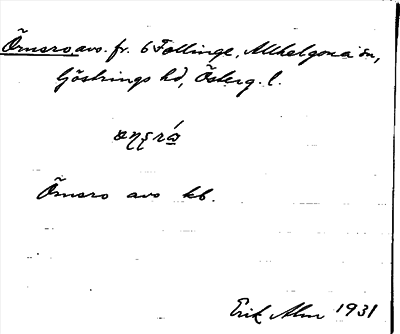 Örnsro, avs. fr. 6 Follinge, Allhelgona sn,
Göstrings hd, Österg. l.
Örnsro avs kb.
Erik Alm 1931